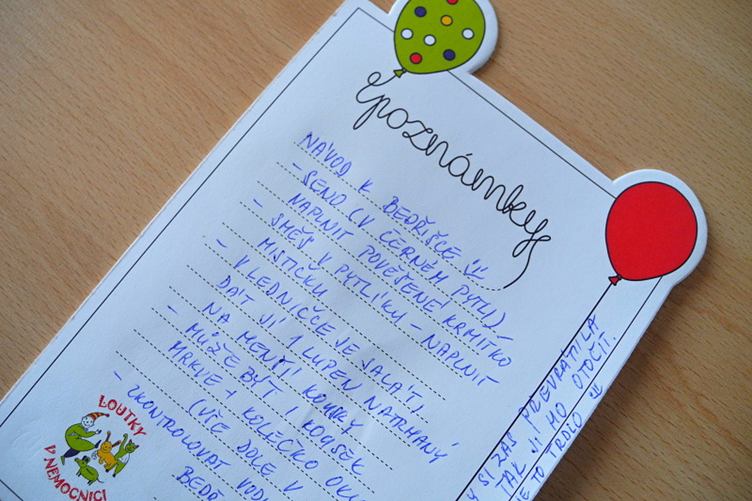 poznámky
NÁVOD K BEDŘIŠCE
- SENO (V ČERNÉM PYTLI)
NAPLNIT POVĚŠENÉ KRMÍTKO
- SMĚS V PYTLÍKU - NAPLNIT
MISTIČKU
- V LEDNIČCE JE SALÁT,
DÁT JÍ 1 LUPEN NATRHANÝ
NA MENŠÍ KOUSKY
- MŮŽE BÝT I KOUSEK
MRKVE + KOLEČKO
(VŠE DOLE V
- ZKONTROLOVAT
SI ZAS PŘEVRÁTILA
TAK JÍ HO OTOČTE.
JE TO TRDLO
LOUTKY
V NEMOCNICI